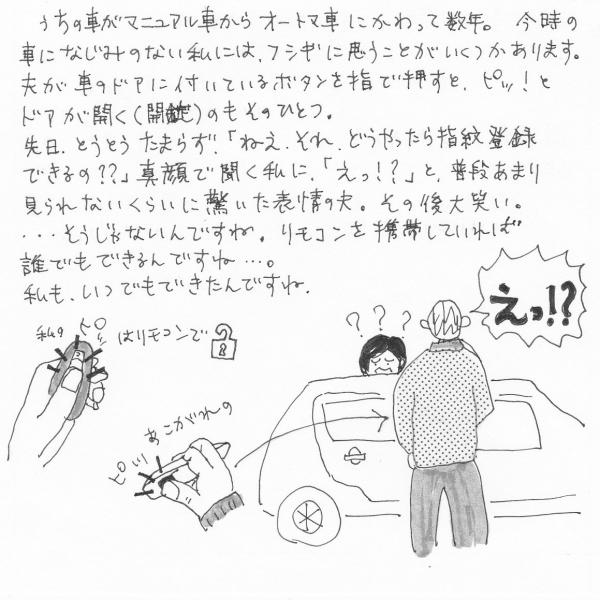 うちの車がマニュアル車からオートマ車にかわって数年。今時の
車になじみのない私には、フシギに思うことがいくつかあります。
夫が車のドアに付いているボタンを指で押すと、ピッ!と
ドアが開く(開錠)のもそのひとつ。
先日、とうとうたまらず、「ねえ、それ、どうやったら指紋登録
できるの??」真顔で聞く私に、「えっ!?」と、普段あまり
見られないくらいに驚いた表情の夫。その後大笑い。
・・・そうじゃないんですね。リモコンを携帯していれば
誰でもできるんですね…。
私も、いつでもできたんですね。
えっ!?
? ? ?
私の ピッ はリモコンで
あこがれの
ピッ